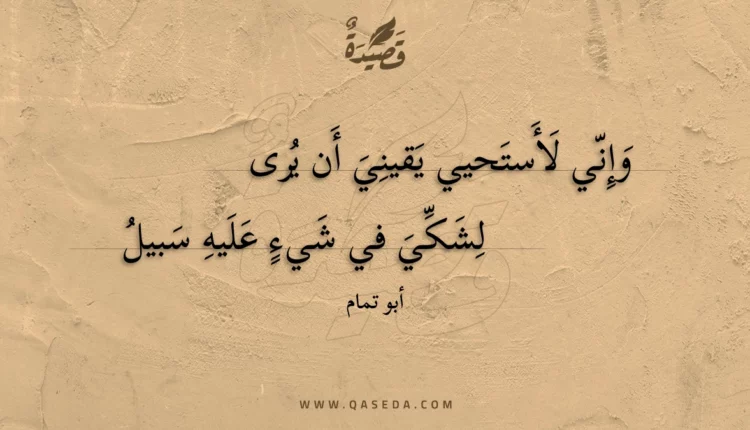 قَصِيْدَةٌ
وَإِنّي لَأَستَحيي يَقينِيَ أَن يُرى
لِشَكِّيَ في شَيءٍ عَلَيهِ سَبيلُ
أبو تمام
WWW.QASEDA.COM